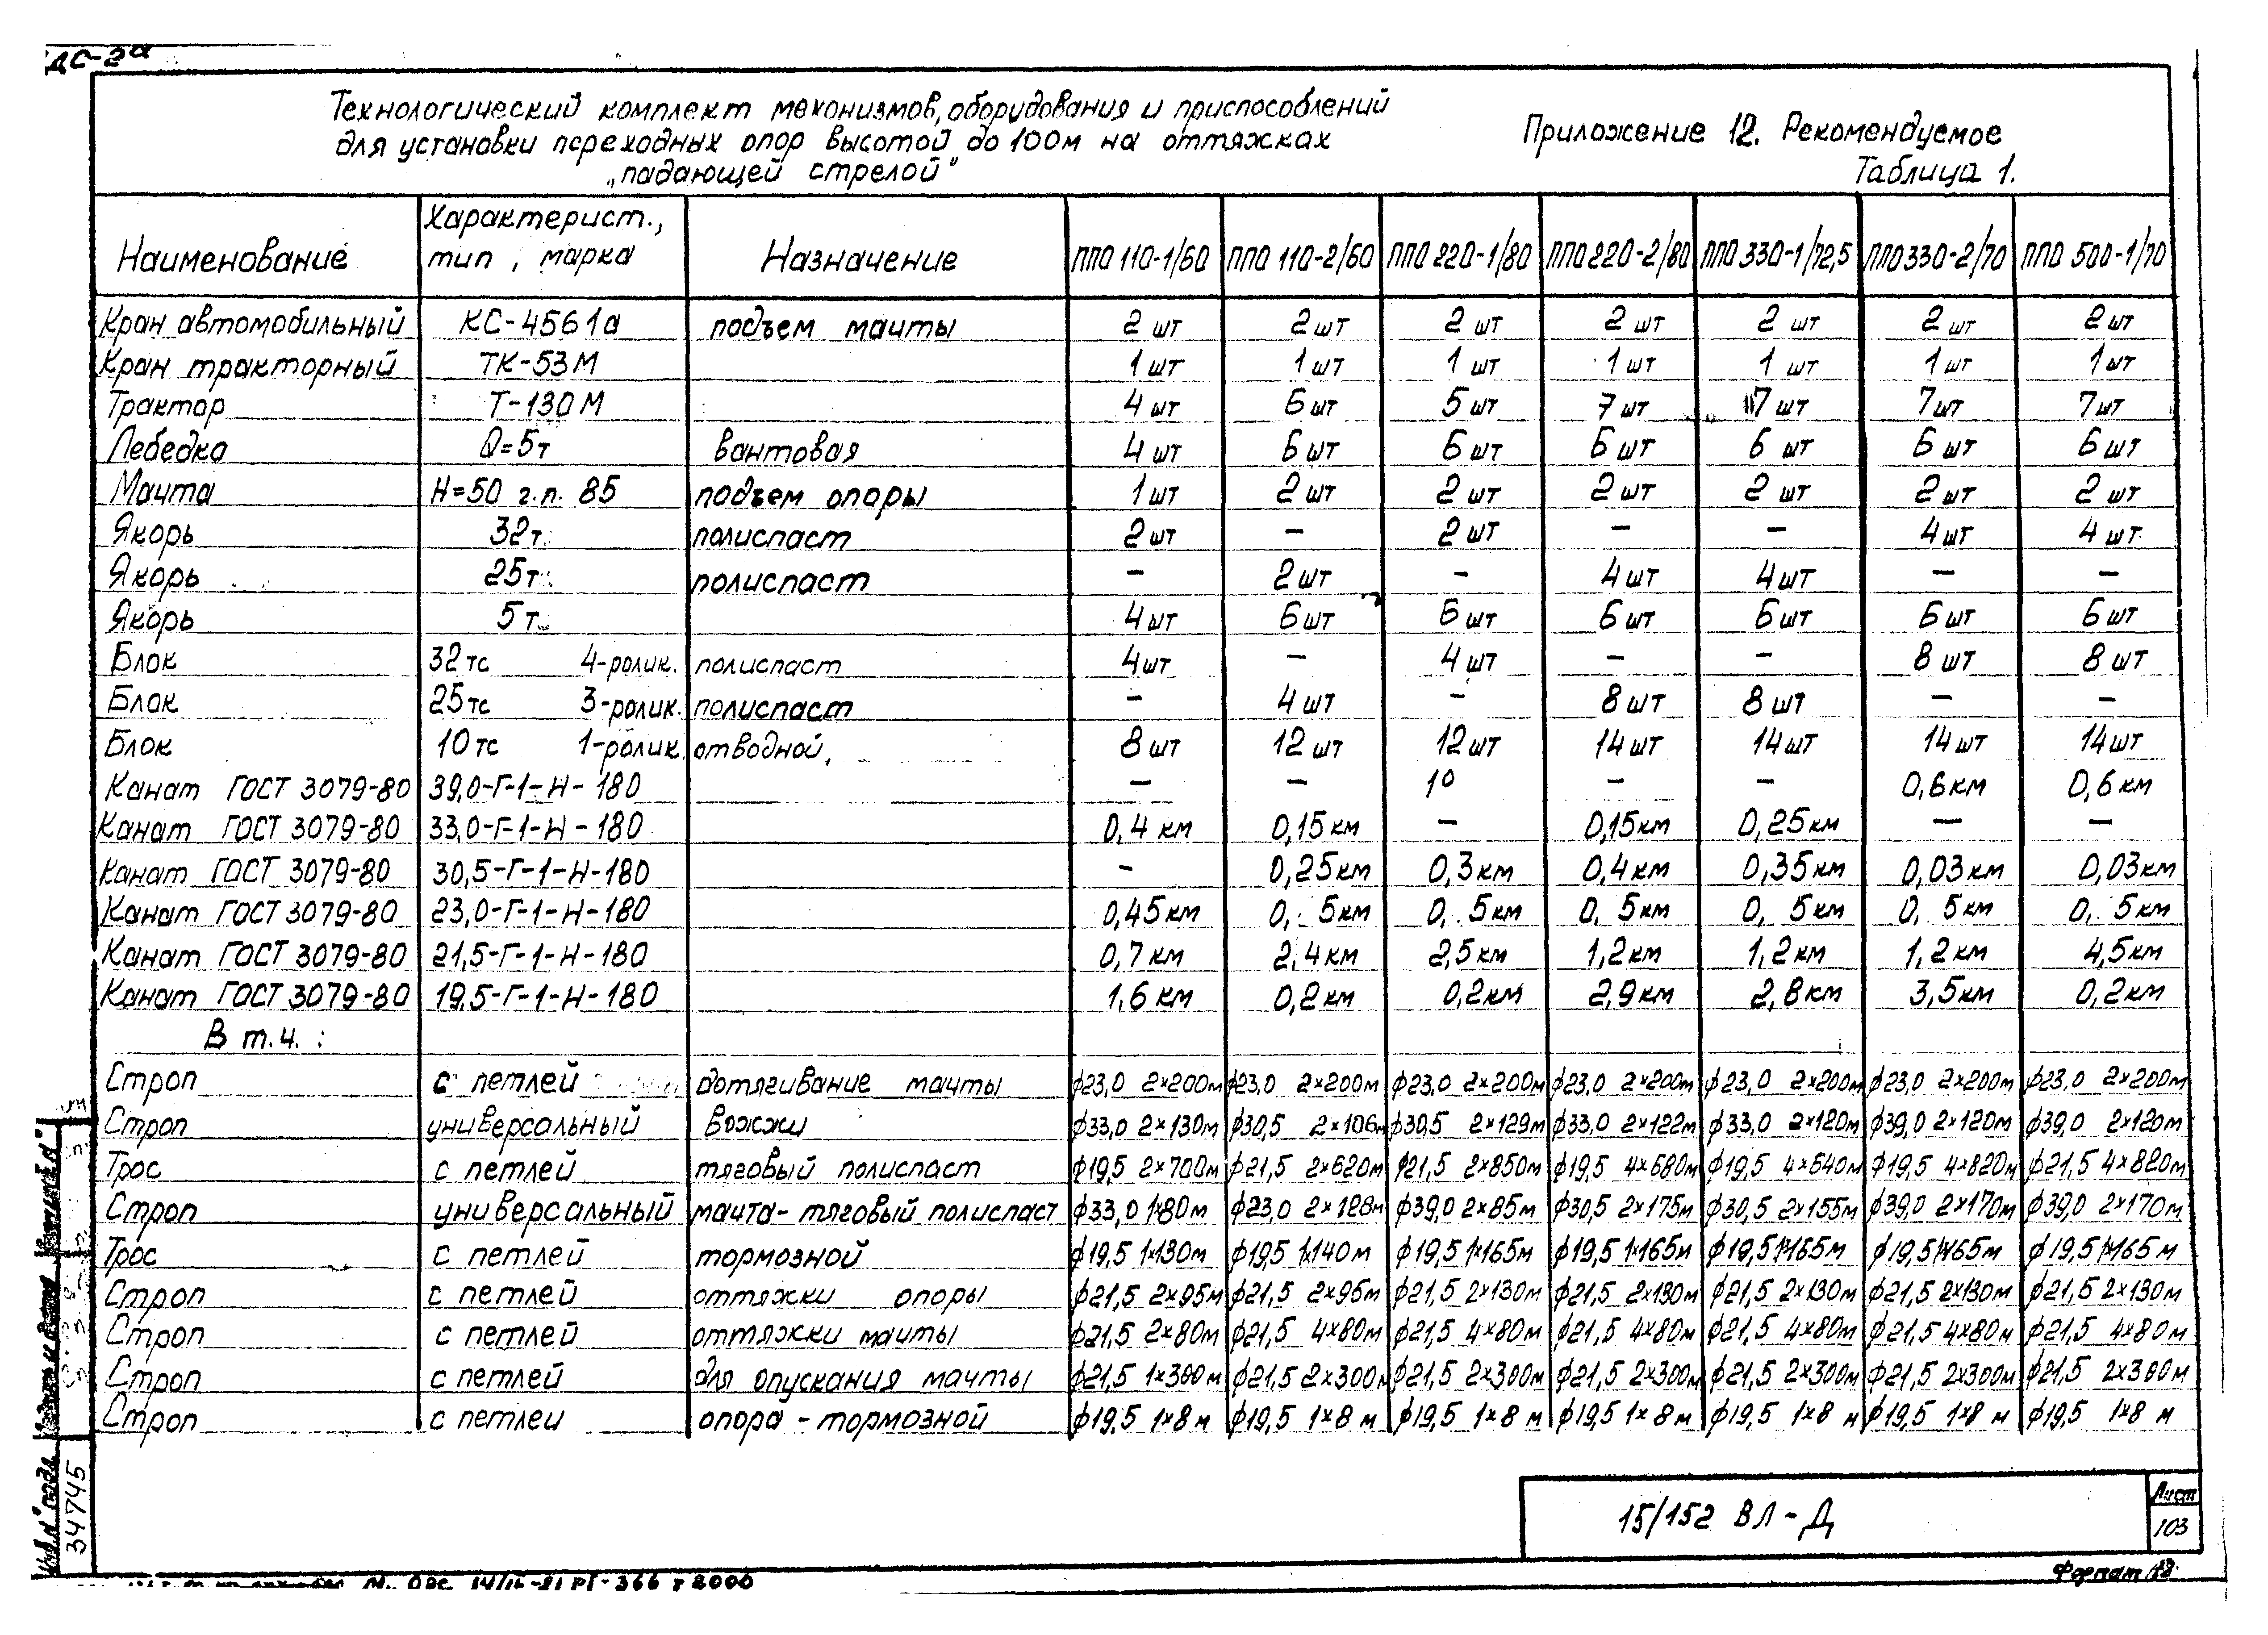 ДС-2а
Технологический комплект механизмов, оборудования и приспособлений
для установки переходных опор высотой до 100м на оттяжках
„падающей стрелой"
Приложение 12. Рекомендуемое
Таблица 1.
Наименование Характерист., тип, марка Назначение ППО 110-1/60 ППО 110-2/60 ППО 220-1/80 ППО 220-2/80 ППО 330-1/72,5 ППО 330-2/70 ППО 500-1/70
Кран автомобильный КС-4561а подъем мачты 2 шт 2 шт 2 шт 2 шт 2 шт 2 шт 2 шт
Кран тракторный ТК-53М 1 шт 1 шт 1 шт 1 шт 1 шт 1 шт 1 шт
Трактор Т-130М 4 шт 6 шт 5 шт 7 шт 7 шт 7 шт 7 шт
Лебедка Q=5т вантовая 4 шт 6 шт 6 шт 6 шт 6 шт 6 шт 6 шт
Мачта Н=50 г.п. 85 подъем опоры 1 шт 2 шт 2 шт 2 шт 2 шт 2 шт 2 шт
Якорь 32т полиспаст 2 шт – 2 шт – – 4 шт 4 шт
Якорь 25т полиспаст – 2 шт – 4 шт 4 шт – –
Якорь 5т 4 шт 6 шт 6 шт 6 шт 6 шт 6 шт 6 шт
Блок 32тс 4-ролик. полиспаст 4 шт – 4 шт – – 8 шт 8 шт
Блок 25тс 3-ролик. полиспаст – 4 шт – 8 шт 8 шт – –
Блок 10тс 1-ролик. отводной, 8 шт 12 шт 12 шт 14 шт 14 шт 14 шт 14 шт
Канат ГОСТ 3079-80 39,0-Г-1-Н-180 – – 10 – – 0,6 км 0,6 км
Канат ГОСТ 3079-80 33,0-Г-1-Н-180 0,4 км 0,15 км – 0,15 км 0,25 км – –
Канат ГОСТ 3079-80 30,5-Г-1-Н-180 – 0,25 км 0,3 км 0,4 км 0,35 км 0,03 км 0,03 км
Канат ГОСТ 3079-80 23,0-Г-1-Н-180 0,45 км 0, 5 км 0, 5 км 0, 5 км 0, 5 км 0, 5 км 0, 5 км
Канат ГОСТ 3079-80 21,5-Г-1-Н-180 0,7 км 2,4 км 2,5 км 1,2 км 1,2 км 1,2 км 4,5 км
Канат ГОСТ 3079-80 19,5-Г-1-Н-180 1,6 км 0,2 км 0,2 км 2,9 км 2,8 км 3,5 км 0,2 км
В т.ч.:
Строп с петлей дотягивание мачты ф23,0 2×200м ф23,0 2×200м ф23,0 2×200м ф23,0 2×200м ф23,0 2×200м ф23,0 2×200м ф23,0 2×200м
Строп универсальный вожжи ф33,0 2×130м ф30,5 2×106м ф30,5 2×129м ф33,0 2×122м ф33,0 2×120м ф39,0 2×120м ф39,0 2×120м
Трос с петлей тяговый полиспаст ф19,5 2×700м ф21,5 2×620м ф21,5 2×850м ф19,5 4×680м ф19,5 4×640м ф19,5 4×820м ф21,5 4×820м
Строп универсальный мачта-тяговый полиспаст ф33,0 1×80м ф23,0 2×128м ф39,0 2×85м ф30,5 2×175м ф30,5 2×155м ф39,0 2×170м ф39,0 2×170м
Трос с петлей тормозной ф19,5 1×130м ф19,5 1×140м ф19,5 1×165м ф19,5 1×165м ф19,5 1×165м ф19,5 1×165м ф19,5 1×165м
Строп с петлей оттяжки опоры ф21,5 2×95м ф21,5 2×95м ф21,5 2×130м ф21,5 2×130м ф21,5 2×130м ф21,5 2×130м ф21,5 2×130м
Строп с петлей оттяжки мачты ф21,5 2×80м ф21,5 4×80м ф21,5 4×80м ф21,5 4×80м ф21,5 4×80м ф21,5 4×80м ф21,5 4×80м
Строп с петлей для опускания мачты ф21,5 1×300м ф21,5 2×300м ф21,5 2×300м ф21,5 2×300м ф21,5 2×300м ф21,5 2×300м ф21,5 2×300м
Строп с петлеи опора - тормозной ф19,5 1×8 м ф19,5 1×8 м ф19,5 1×8 м ф19,5 1×8 м ф19,5 1×8 м ф19,5 1×8 м ф19,5 1×8 м
Инв.№ подл.
34745
15/152 ВЛ-Д
Лист
103
Формат